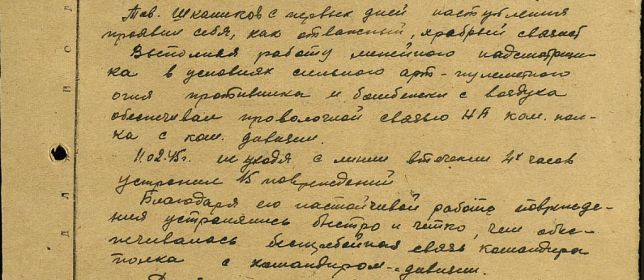 Тов. Шкапиков с первых дней наступления
проявил себя, как отважный, храбрый связист
Выполняя работу линейного надсмотрщи-
ка в условиях сильного арт-пулеметного
огня противника и бомбежки с воздуха
обеспечивал проволочной связью НП ком. пол-
ка с ком. дивизии.
11.02.45г. не уходя с линии в течении 4х часов
устранил 15 повреждений
Благодаря его настойчивой работе поврежде-
ния устранялись быстро и четко, чем обес-
печивалась бесперебойная связь командира
полка с командиром дивизии.